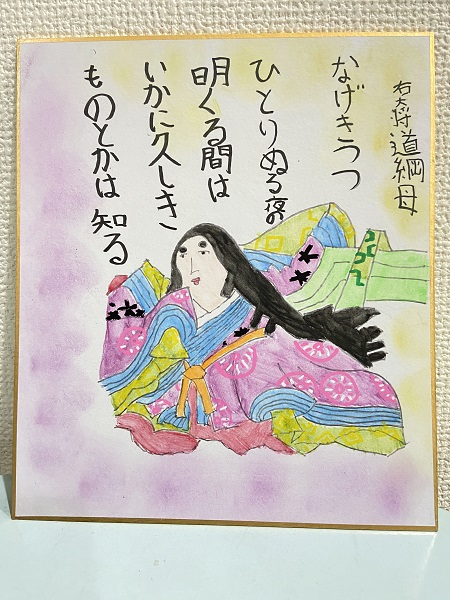 右大将道綱母
なげきつつ
ひとりぬる夜の
明くる間は
いかに久しき
ものとかは知る